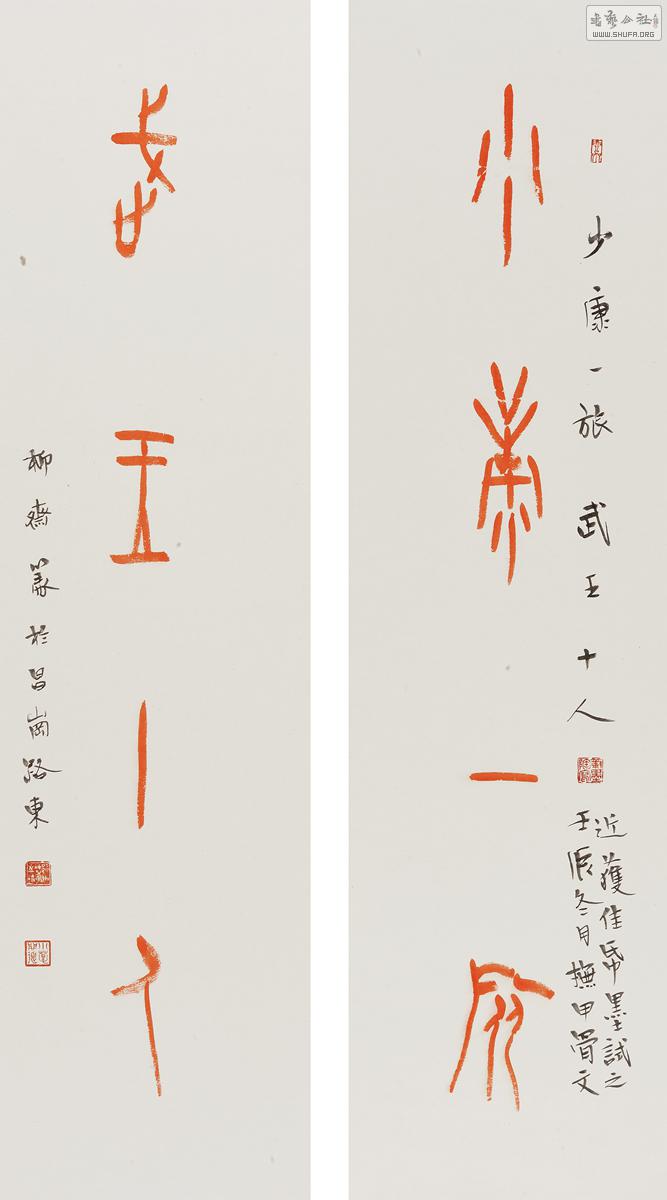 書藝公社
WWW.SHUFA.ORG
少康一旅 武王十人
近獲佳帋墨試之
壬辰冬月撫甲骨文
少康一旅
武王十人
柳齋篆於昌崗路東